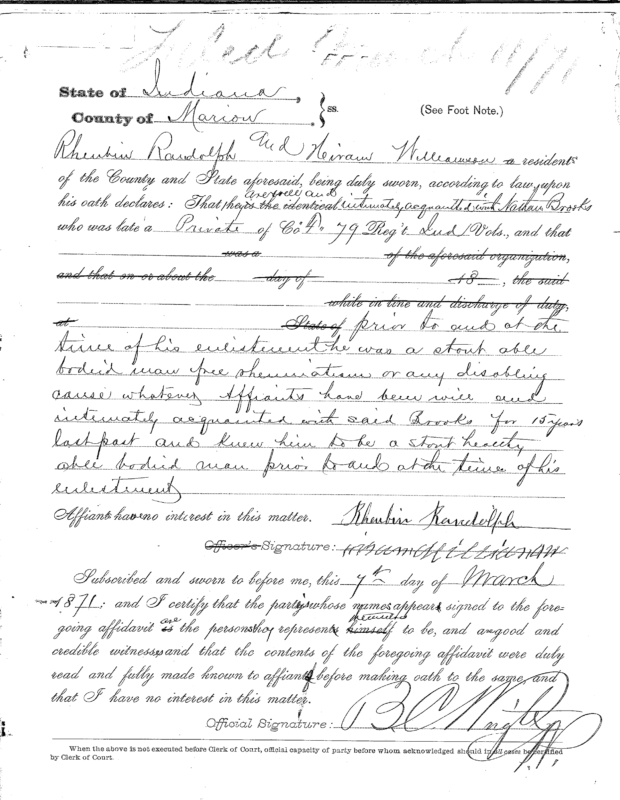 Filed March
State of Indiana,
County of Marion. } ss. (See Foot Note.)
Rheubin Randolph and Heiram Williamson a residents
of the County and State aforesaid, being duly sworn, according to law, upon
are well and
his oath declares: That, he is the identical intimately acquainted with Nathan Brooks
who was late a Private of Co "4" 79 Reg't Ind / Vols., and that
was a of the aforesaid organization,
and that on or about the day of 18 , the said
while in line and discharge of duty,
at State of prior to and at the
time of his enlistement he was a stout able
bodied man free rheumatism or any disabling
cause whatever Affiants have been will and
intimately acquainted with said Brooks for 15 years
last past and knew him to be a stout hearty
able bodied man prior to and at the time of his
enlestiment
Affiant have no interest in this matter. Rheubin Randolph
Officer's Signature:
Subscribed and sworn to before me, this 7th day of March
1871; and I certify that the partys whose names appears signed to the fore=
are themselves
going affidavit is the persons they represents himself to be, and a good and
credible witness, and that the contents of the foregoing affidavit were duly
read and fully made known to affiants before making oath to the same, and
that I have no interest in this matter.
Official Signature: B C Wright
When the above is not executed before Clerk of Court, official capacity of party before whom acknowledged should in all cases be certified
by Clerk of Court.